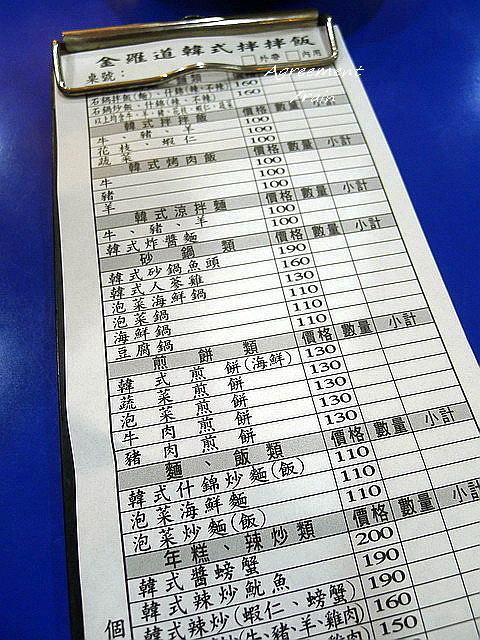 金羅道韓式拌拌飯
桌號： □外帶 □內用
Agreement
Train
石鍋拌飯(麵)、什錦(辣、不辣) 160
石鍋炒飯、什錦(辣、不辣) 160
韓式拌拌飯 價格 數量 小計
牛、豬、羊 100
花枝、蝦仁 100
蔬菜 100
韓式烤肉飯 價格 數量 小計
牛 100
豬 100
羊 100
韓式涼拌麵 價格 數量 小計
牛、豬、羊 100
韓式炸醬麵 100
砂鍋類 價格 數量 小計
韓式砂鍋魚頭 190
韓式人蔘雞 160
泡菜海鮮鍋 130
泡菜鍋 110
海鮮鍋 110
豆腐鍋 110
煎餅類 價格 數量 小計
韓式煎餅(海鮮) 130
蔬菜煎餅 130
泡菜煎餅 130
牛肉煎餅 130
豬肉煎餅 130
麵、飯類 價格 數量 小計
韓式什錦炒麵(飯) 110
泡菜海鮮麵 110
泡菜炒麵(飯) 110
年糕、辣炒類 價格 數量 小計
韓式醬螃蟹 200
韓式辣炒魷魚 190
韓式辣炒(蝦仁、螃蟹) 190
個 韓式辣炒(牛、豬、羊、雞肉) 160
150